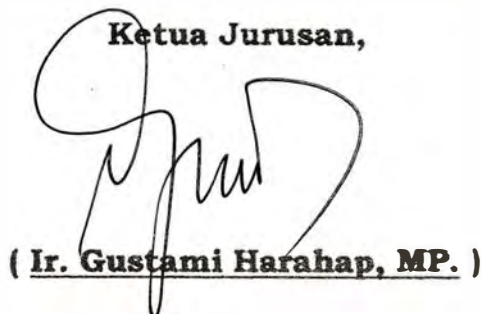 Ketua Jurusan,
( Ir. Gustami Harahap, MP. )